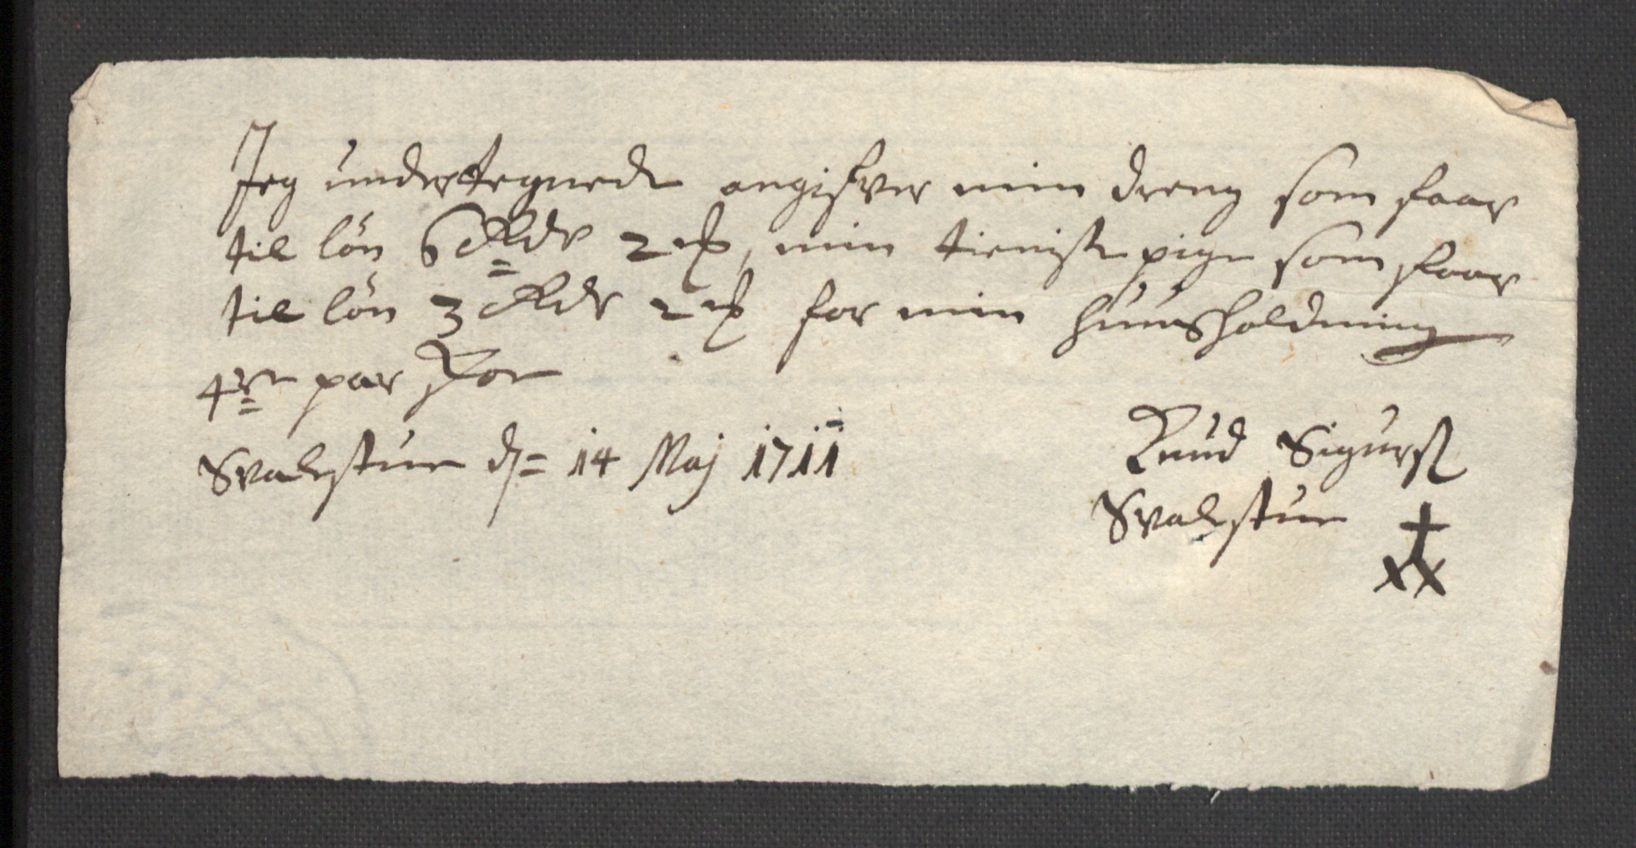 Jeg undertegnede angifver min dreng som faar
til lön 6 Rdr 2 ß, min tieniste pige som faar
til lön 3 Rdr 2 ß for min huusholdning
4re par skoe
Svalestue d= 14 Maj 1711
Knud Sigurs
Svalestue